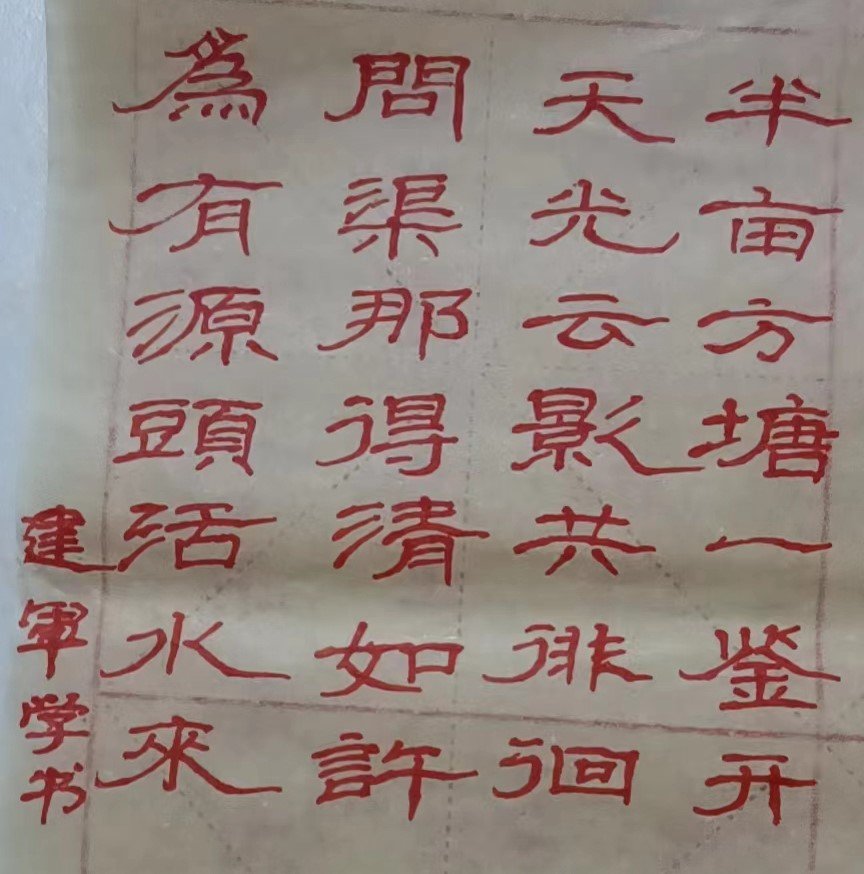 半亩方塘一鉴开
天光云影共徘徊
問渠那得清如許
為有源頭活水來
建军学书